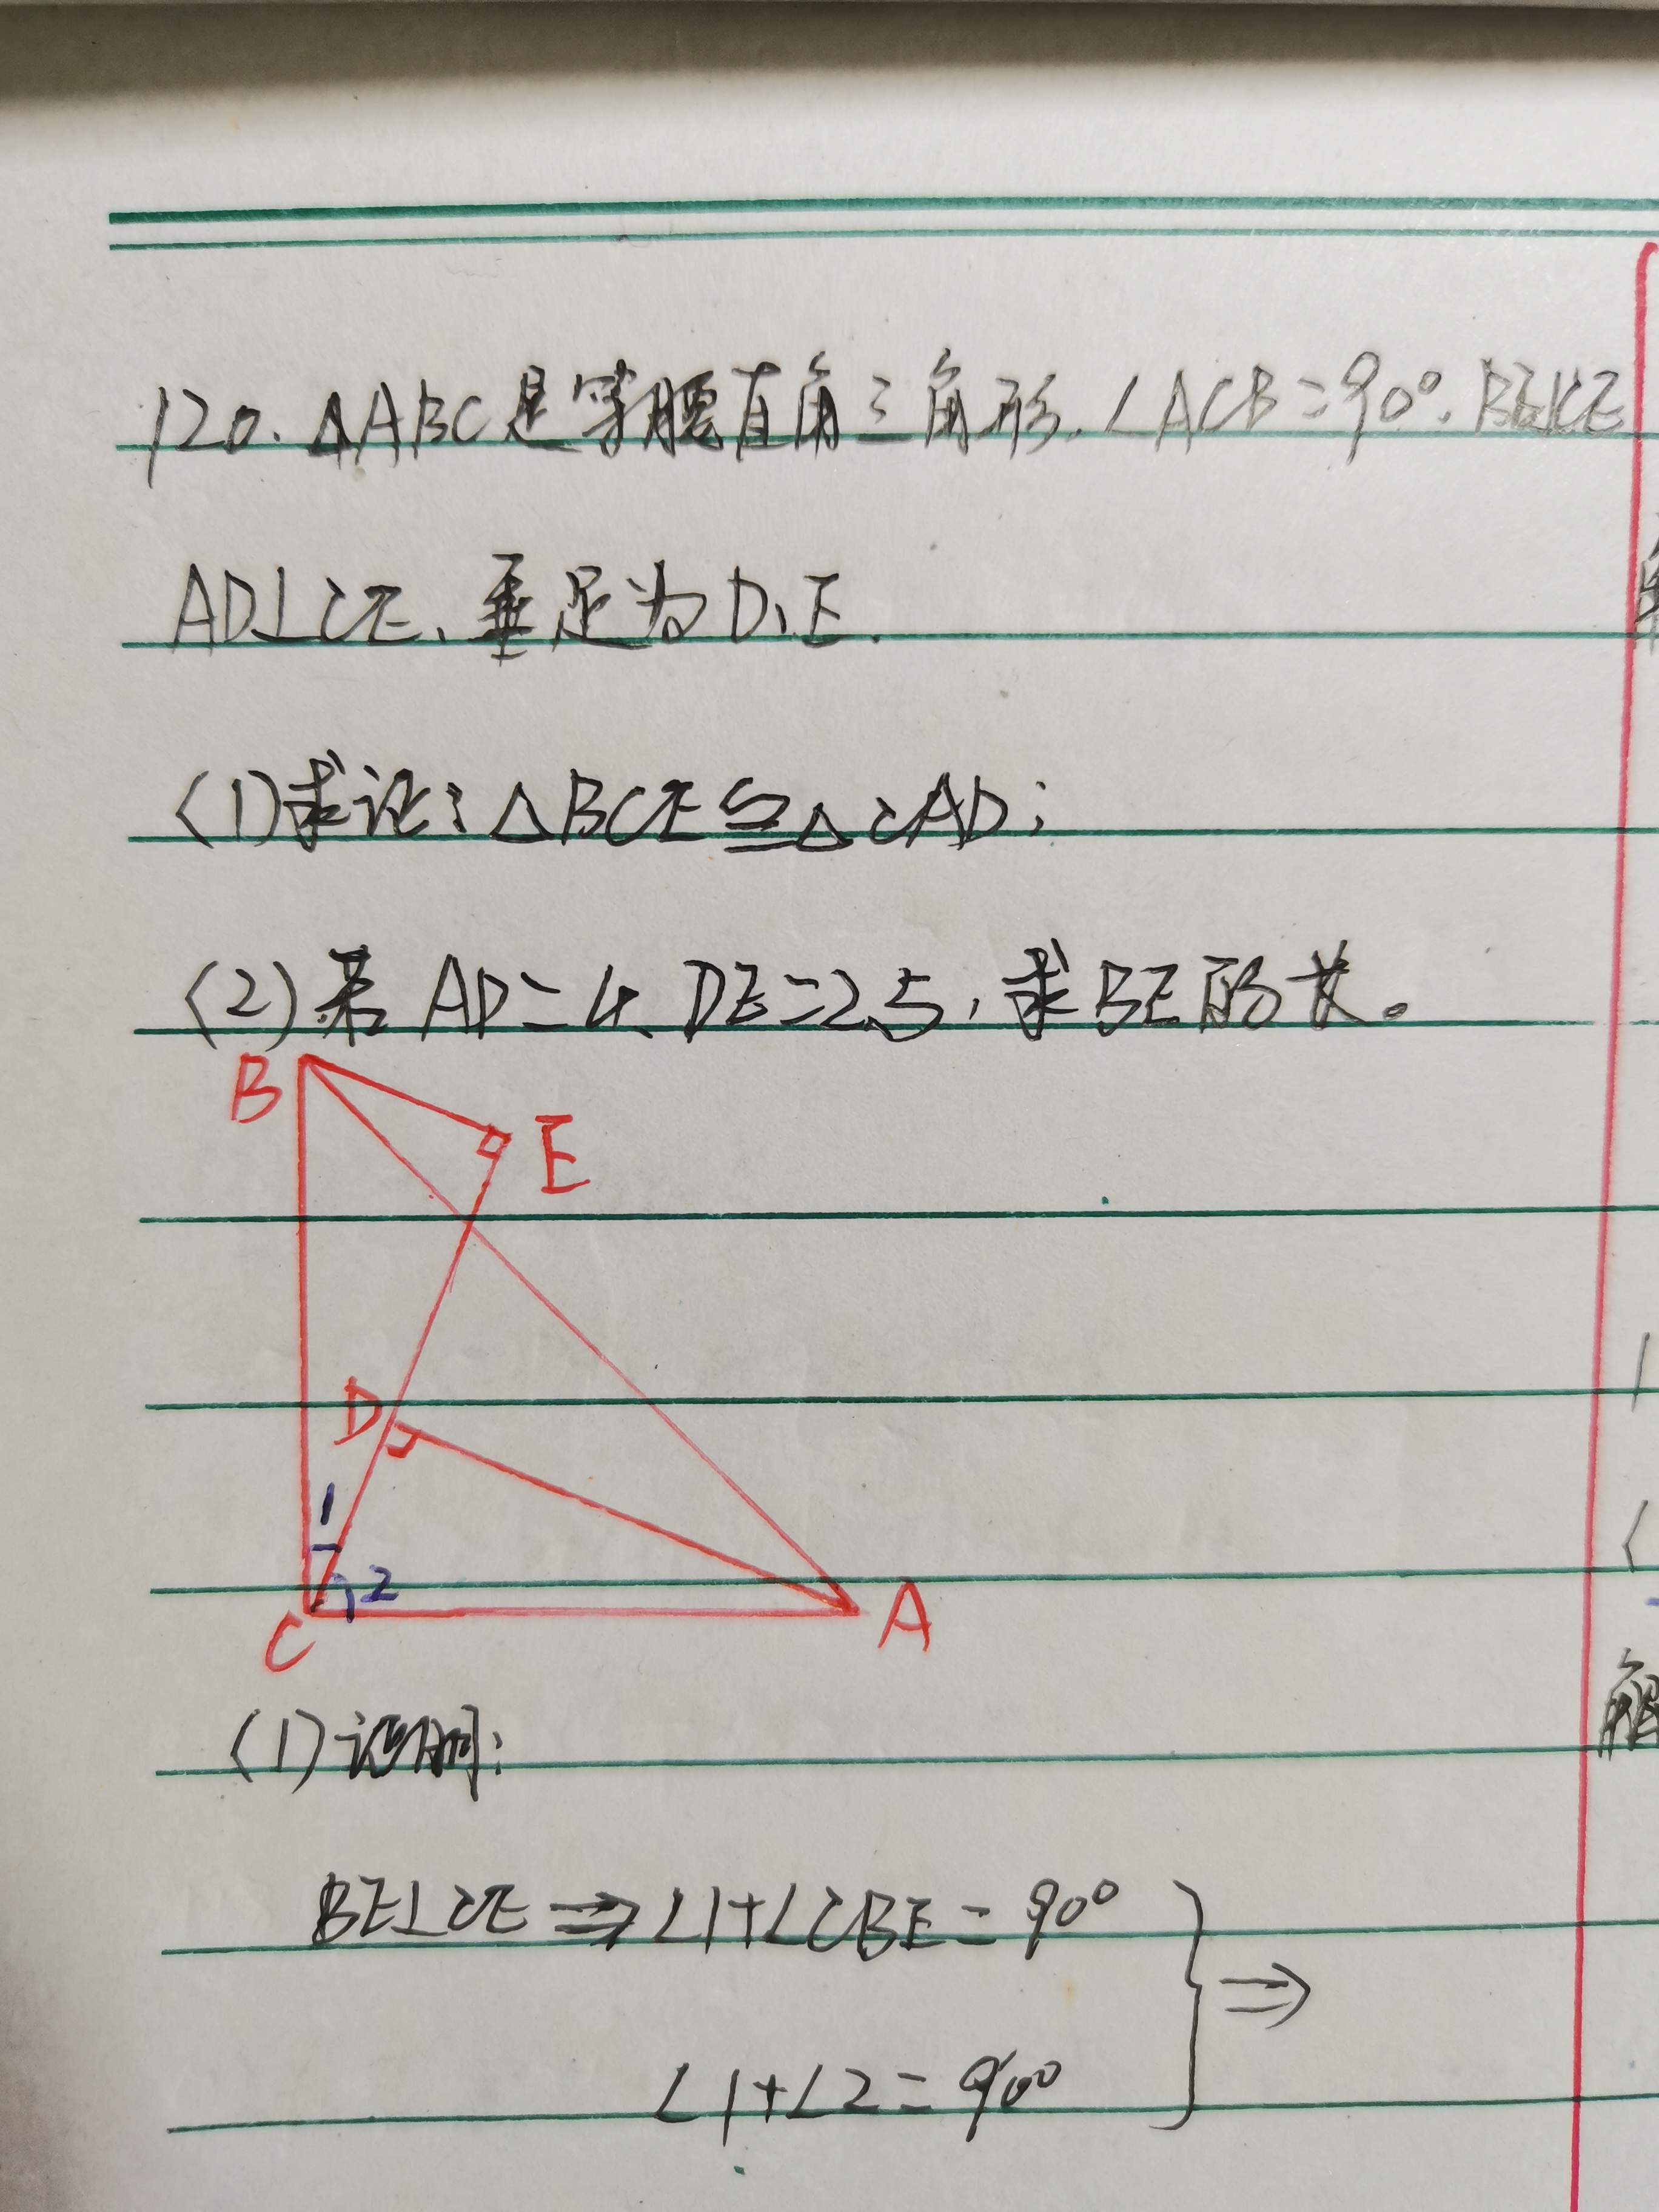 120. △ABC是等腰直角三角形. ∠ACB=90°. BE⊥CE
AD⊥CE、垂足为D、E.
(1)求证:△BCE≌△CAD;
(2)若AD=4、DE=2.5,求BE的长。
B
E
D
1
2
C
A
(1)证明:
BE⊥CE⇒∠1+∠CBE=90°
⇒
∠1+∠2=90°
解